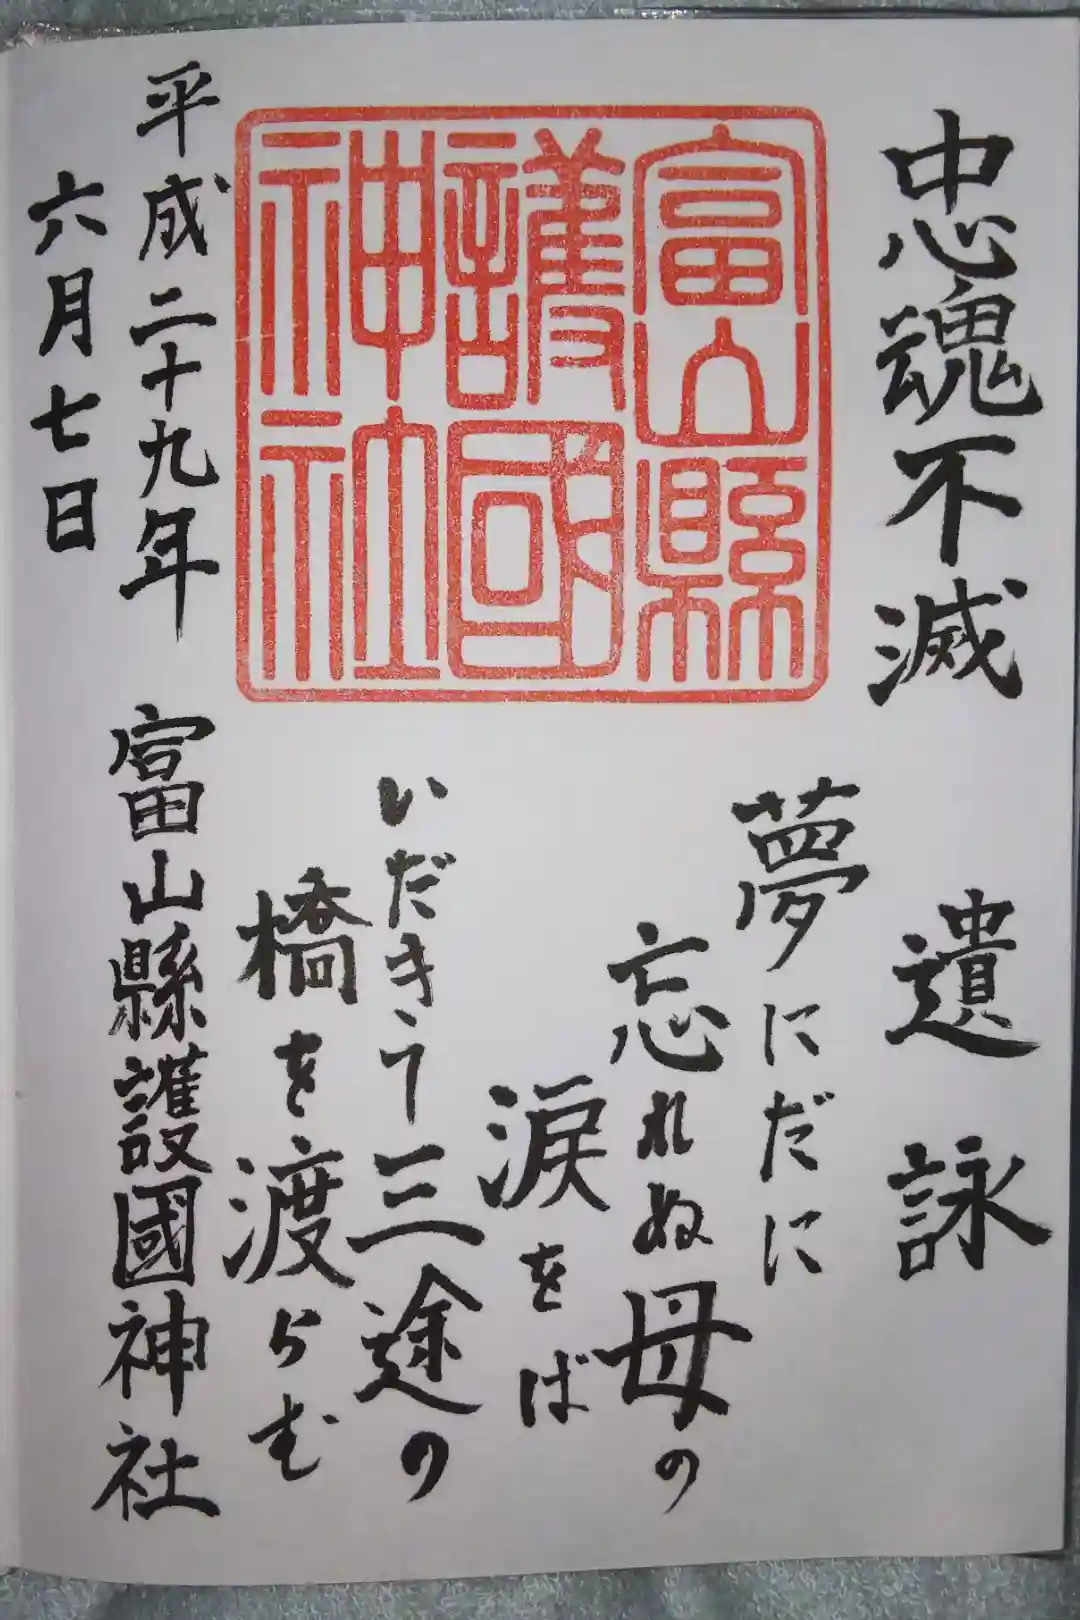 忠魂不滅
遺詠
夢にだに
忘れぬ母の
涙をば
いだきて三途の
橋を渡らむ
富山縣
護國
神社
平成二十九年
六月七日
富山縣護國神社